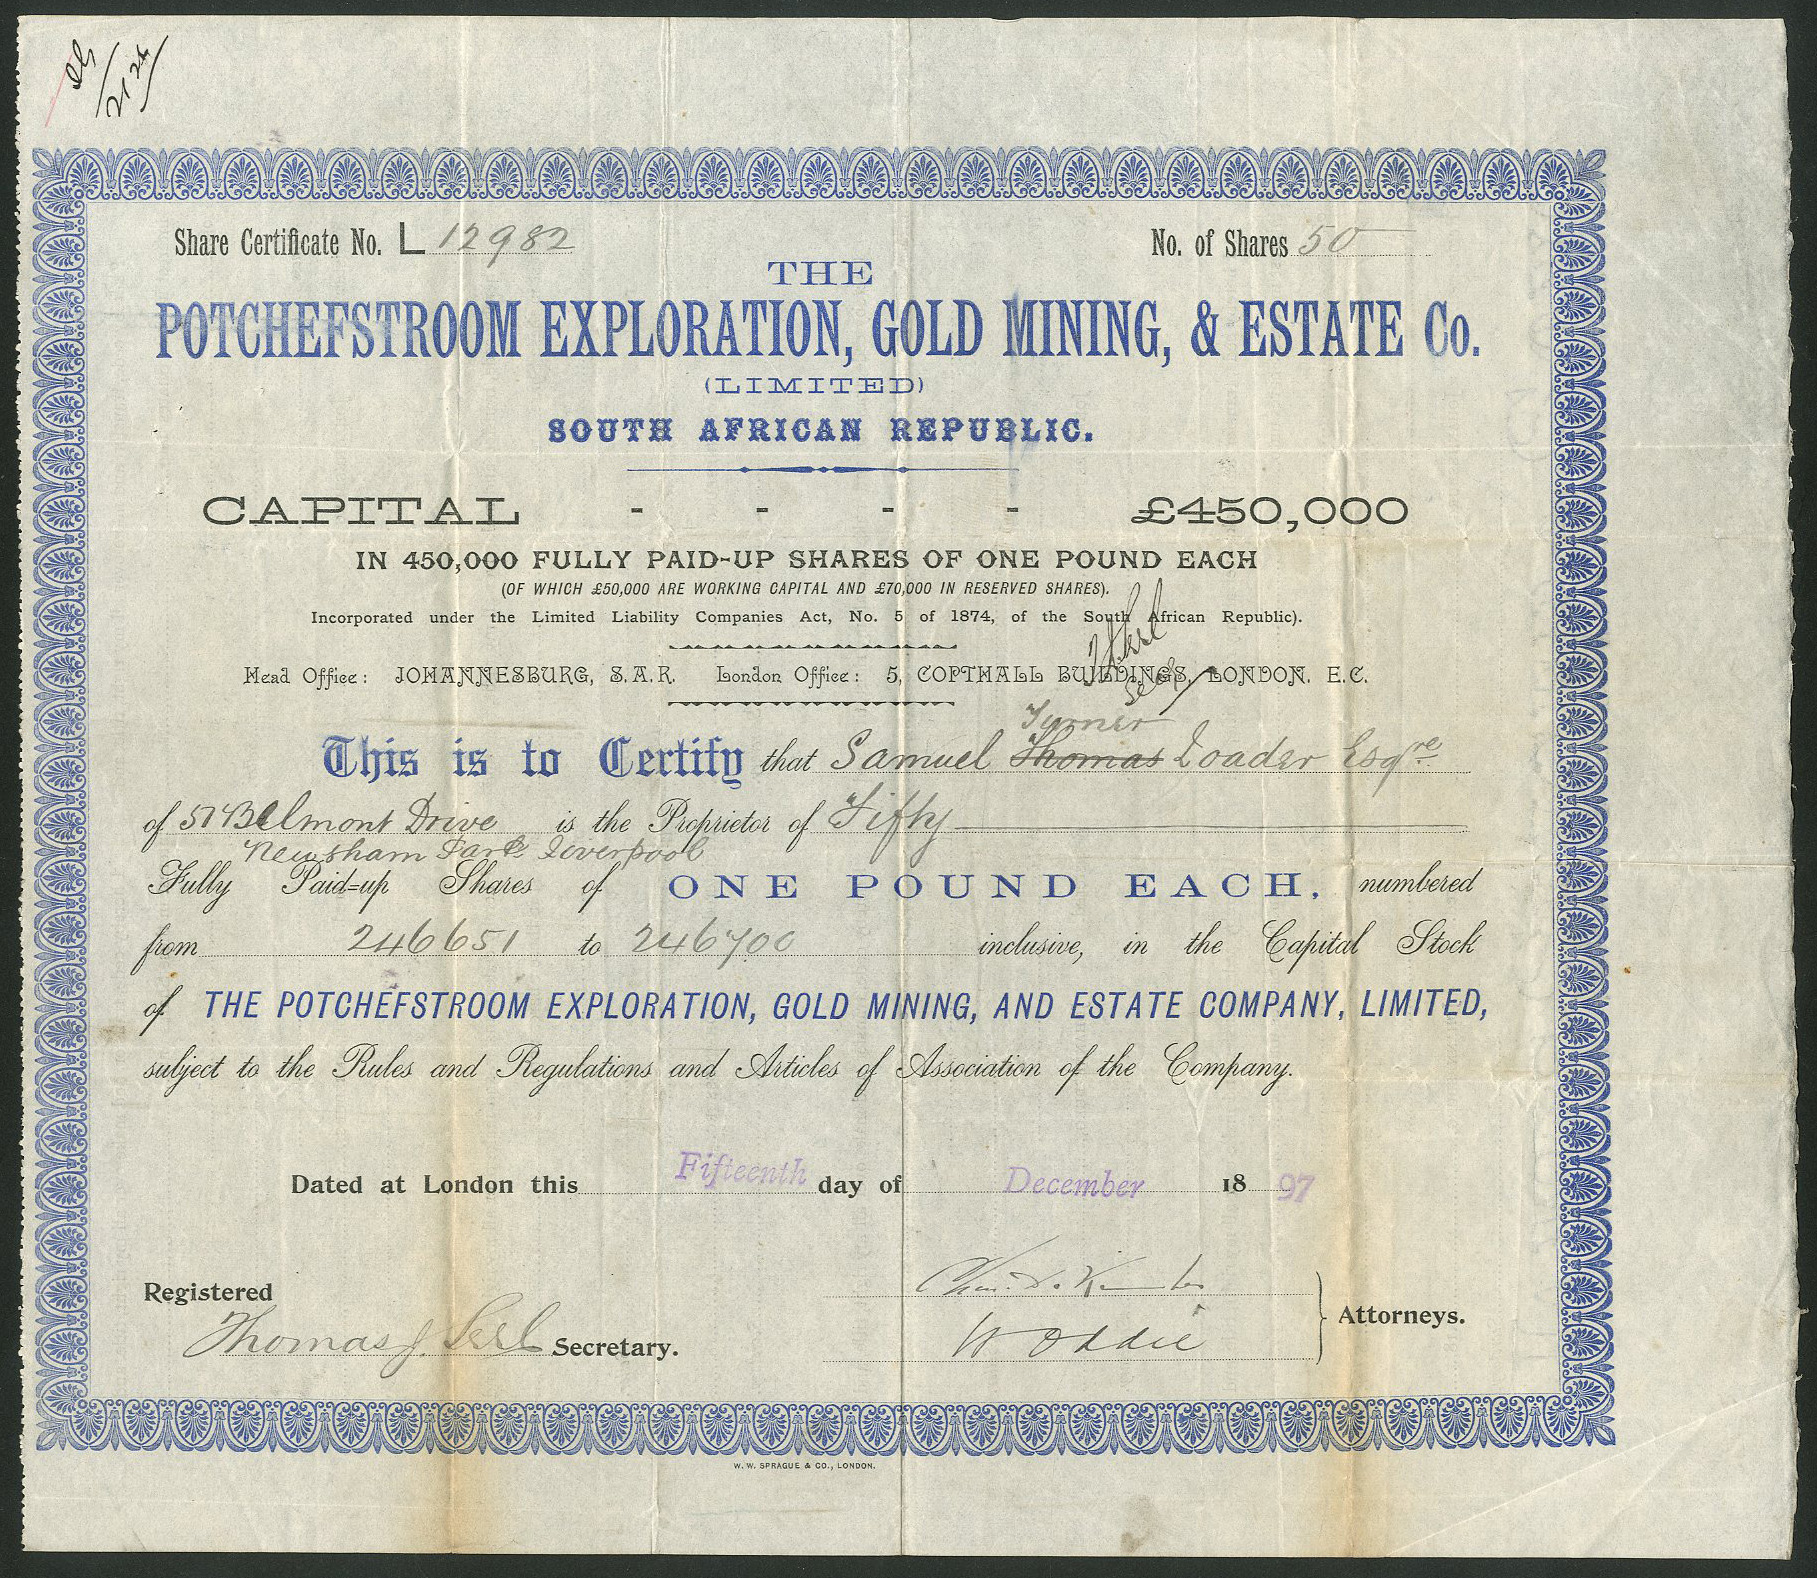 21 24
Share Certificate No. L 12982
No. of Shares 50
THE
POTCHEFSTROOM EXPLORATION, GOLD MINING, & ESTATE Co.
(LIMITED)
SOUTH AFRICAN REPUBLIC.
CAPITAL - - - - £450,000
IN 450,000 FULLY PAID-UP SHARES OF ONE POUND EACH
(OF WHICH £50,000 ARE WORKING CAPITAL AND £70,000 IN RESERVED SHARES).
Incorporated under the Limited Liability Companies Act, No. 5 of 1874, of the South African Republic).
Head Office: JOHANNESBURG, S.A.R. London Office: 5, COPTHALL BUILDINGS, LONDON. E.C.
Secy
Turner
This is to Certify that Samuel Thomas Loader Esqre
of 57 Belmont Drive is the Proprietor of Fifty
Newsham Park Liverpool
Fully Paid=up Shares of ONE POUND EACH, numbered
from 246651 to 246700 inclusive, in the Capital Stock
of THE POTCHEFSTROOM EXPLORATION, GOLD MINING, AND ESTATE COMPANY, LIMITED,
subject to the Rules and Regulations and Articles of Association of the Company.
Dated at London this Fifteenth day of December 1897
Registered
Thomas J. Secretary.
W Oddie
Attorneys.
W. W. SPRAGUE & CO., LONDON.